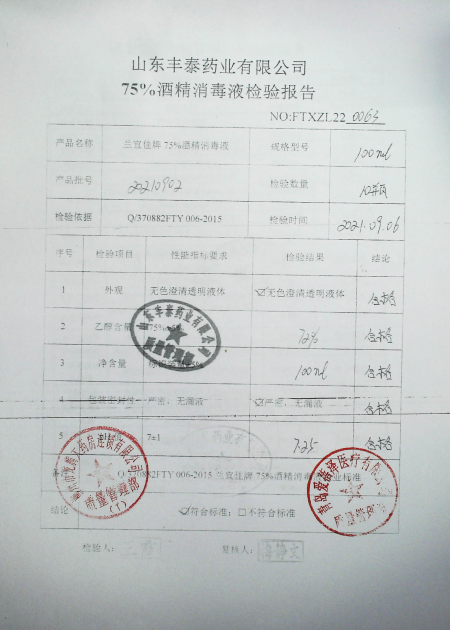 山东丰泰药业有限公司
75%酒精消毒液检验报告
NO:FTXZL22 0063
产品名称 兰宜佳牌 75%酒精消毒液 规格型号 100ml
产品批号 20210902 检验数量
检验依据 Q/370882FTY 006-2015 检验时间 2021.09.06
序号 检验项目 性能指标要求 检验结果 结论
1 外观 无色澄清透明液体 ☑无色澄清透明液体 合格
2 乙醇含量 75% 72% 合格
3 净含量 100ml 合格
4 严密，无漏液 ☑严密，无漏液 合格
5 7±1 7.25 合格
Q/370882FTY 006-2015 兰宜佳牌 75%酒精消毒 标准
结论 ☑符合标准；☐不符合标准
检验人： 复核人：
山东丰泰药业有限公司
质量管理部
(1)